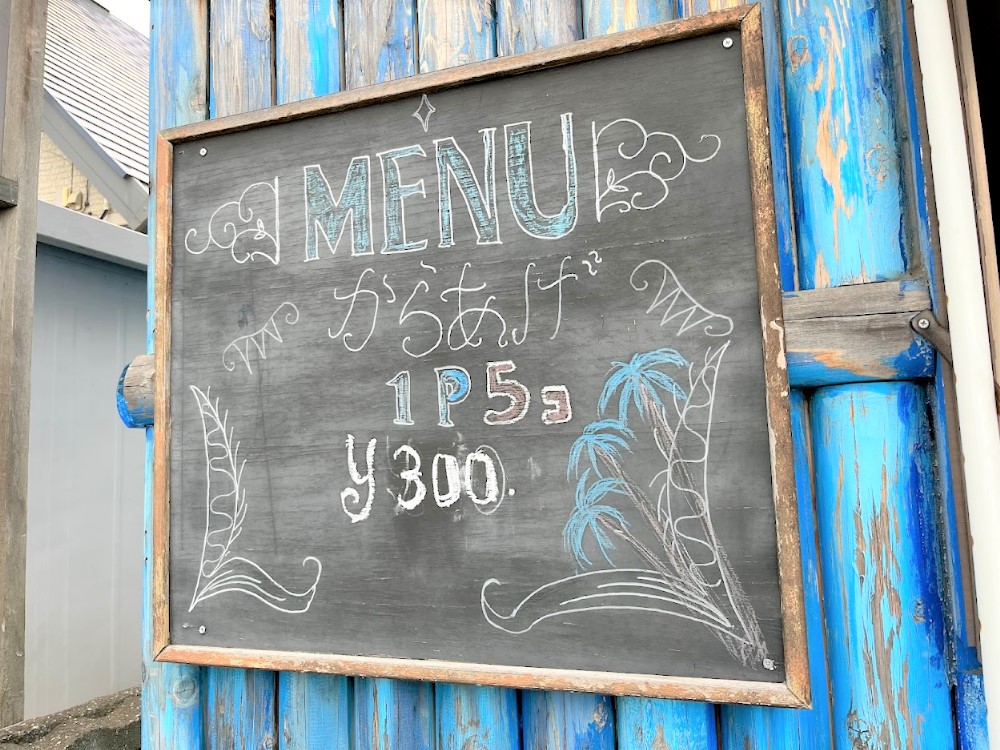 MENU
からあげ
1P5コ
y300.